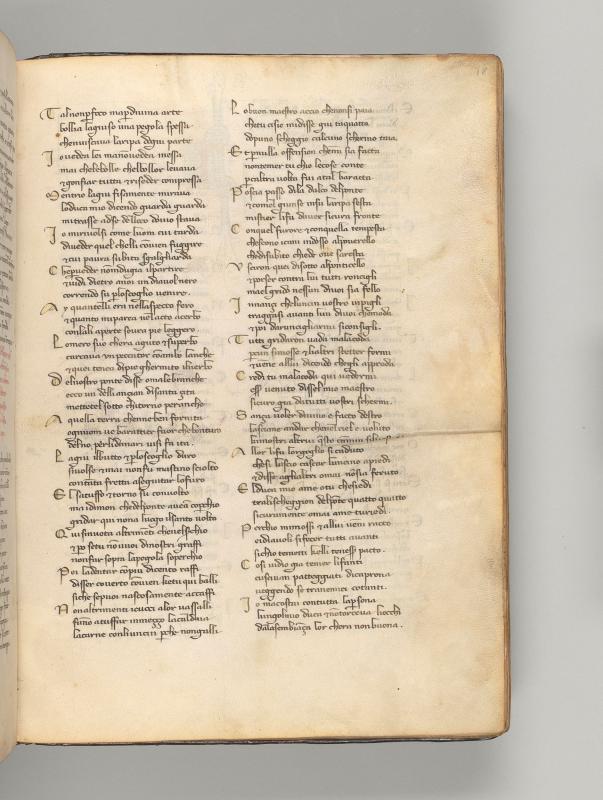 18
Tal non p foco ma p divina arte
bollia laguiso una pegola spessa
chenviscava laripa degni parte
Io vedea lei ma no vedea inessa
mai chelebolle chelbollor levava
& gonfiar tutta & riseder compressa
Mentrio lagiu fisamente mirava
loduca mio dicendo guarda guarda
mitrasse adse delloco dovio stava
Io mi rivolsi come luom cui tarda
diveder quel chelli convien fuggire
& cui paura subita sgalgliarda
Che p veder nomdugia ilpartire
& vidi dietro anoi un diavol nero
correndo su p loscoglio venire.
Ay quantelli era nellaspecto fero
& quanto miparea nelacto acerbo
conlali aperte sovra pie leggero.
Lomero suo chera aguto & superbo
carcava un peccator coambo lanche
& quei tenea dipie ghermito ilnerbo
Delnostro ponte disse omalebranche
ecco un delli ancian disanta çita
mettetel sotto chitorno peranche
Aquella terra chenne ben fornita
ogniuom ve barattier fuor chebonturo
delno perlidenari visi fa ita.
Lagiu ilbutto & p loscoglio duro
sivolse & mai nonfu mastino sciolto
contanta fretta aseguitar lofuro
Elsatuffo & torno su convolto
ma idimon chedelponte avea copchio
gridar qui nona luogo ilsanto volto
Qui sinuota altrimeti chenelschio
& po se tu no vuoi dinostri graffi
nonfar sopra lapegola soperchio
Poi ladentar copiu dicento raffi
disser coverto conven kettu qui balli
siche sepuoi nascosamente accaffi
Non altrimenti icuoci alor vassalli
fanno atuffare in meçço lacaldaia
lacarne conliuncin pche nongalli
Lobuon maestro accio chenonsi paia
chetu cisie midisse giu taquatta
dopuno scheggio calcuno schermo taia
Et p nulla offension chemi sia facta
nontemer tu chio lecose conte
pcaltra volta fui atal baratta
Poscia passo dila dalco delponte
& comel giunse insu laripa sesta
mistier lifu daver sicura fronte
Conquel furore & conquella tempesta
chescono icani adosso alpoverello
chedisubito chiede ove sarresta
Usciron quei disotto alponticello
& porser contra lui tutti roncigli
mael grido nessun divoi sia fello
Inançi cheluncin vostro mipigli
traggasi avanti lun divoi chemoda
& poi darunciglarmi siconsigli.
Tutti gridaron vada malacoda
pcun simosse & lialtri stetter fermi
& vene allui dicendo chegli approda
Credi tu malacoda qui vedermi
esser venuto disse'l mio maestro
sicuro gia datutti vostri schermi
Sança voler divino & facto destro
lascianे andar chenel ciel e voluto
kimostri altrui qsto camin silvestro
Allor lifu lorgoglio si caduto
chesi lascio cascar luncino apiedi
& disse aglialtri omai nonsia feruto
Elduca mio ame otu chesiedi
tralischeggion delponte quatto quatto
sicuramente omai ame turiedi.
Perchio mimossi & allui veni racto
eidiavoli sifecer tutti avanti
sichio temetti kelli tenesser pacto.
Cosi vidio gia temer lifanti
cuscivan patteggiati dicaprona
veggendo se tranemici cotanti.
Io macostai contutta lapsona
lungolmio duca & notorceva liocchi
dalasembiança lor chera non buona.